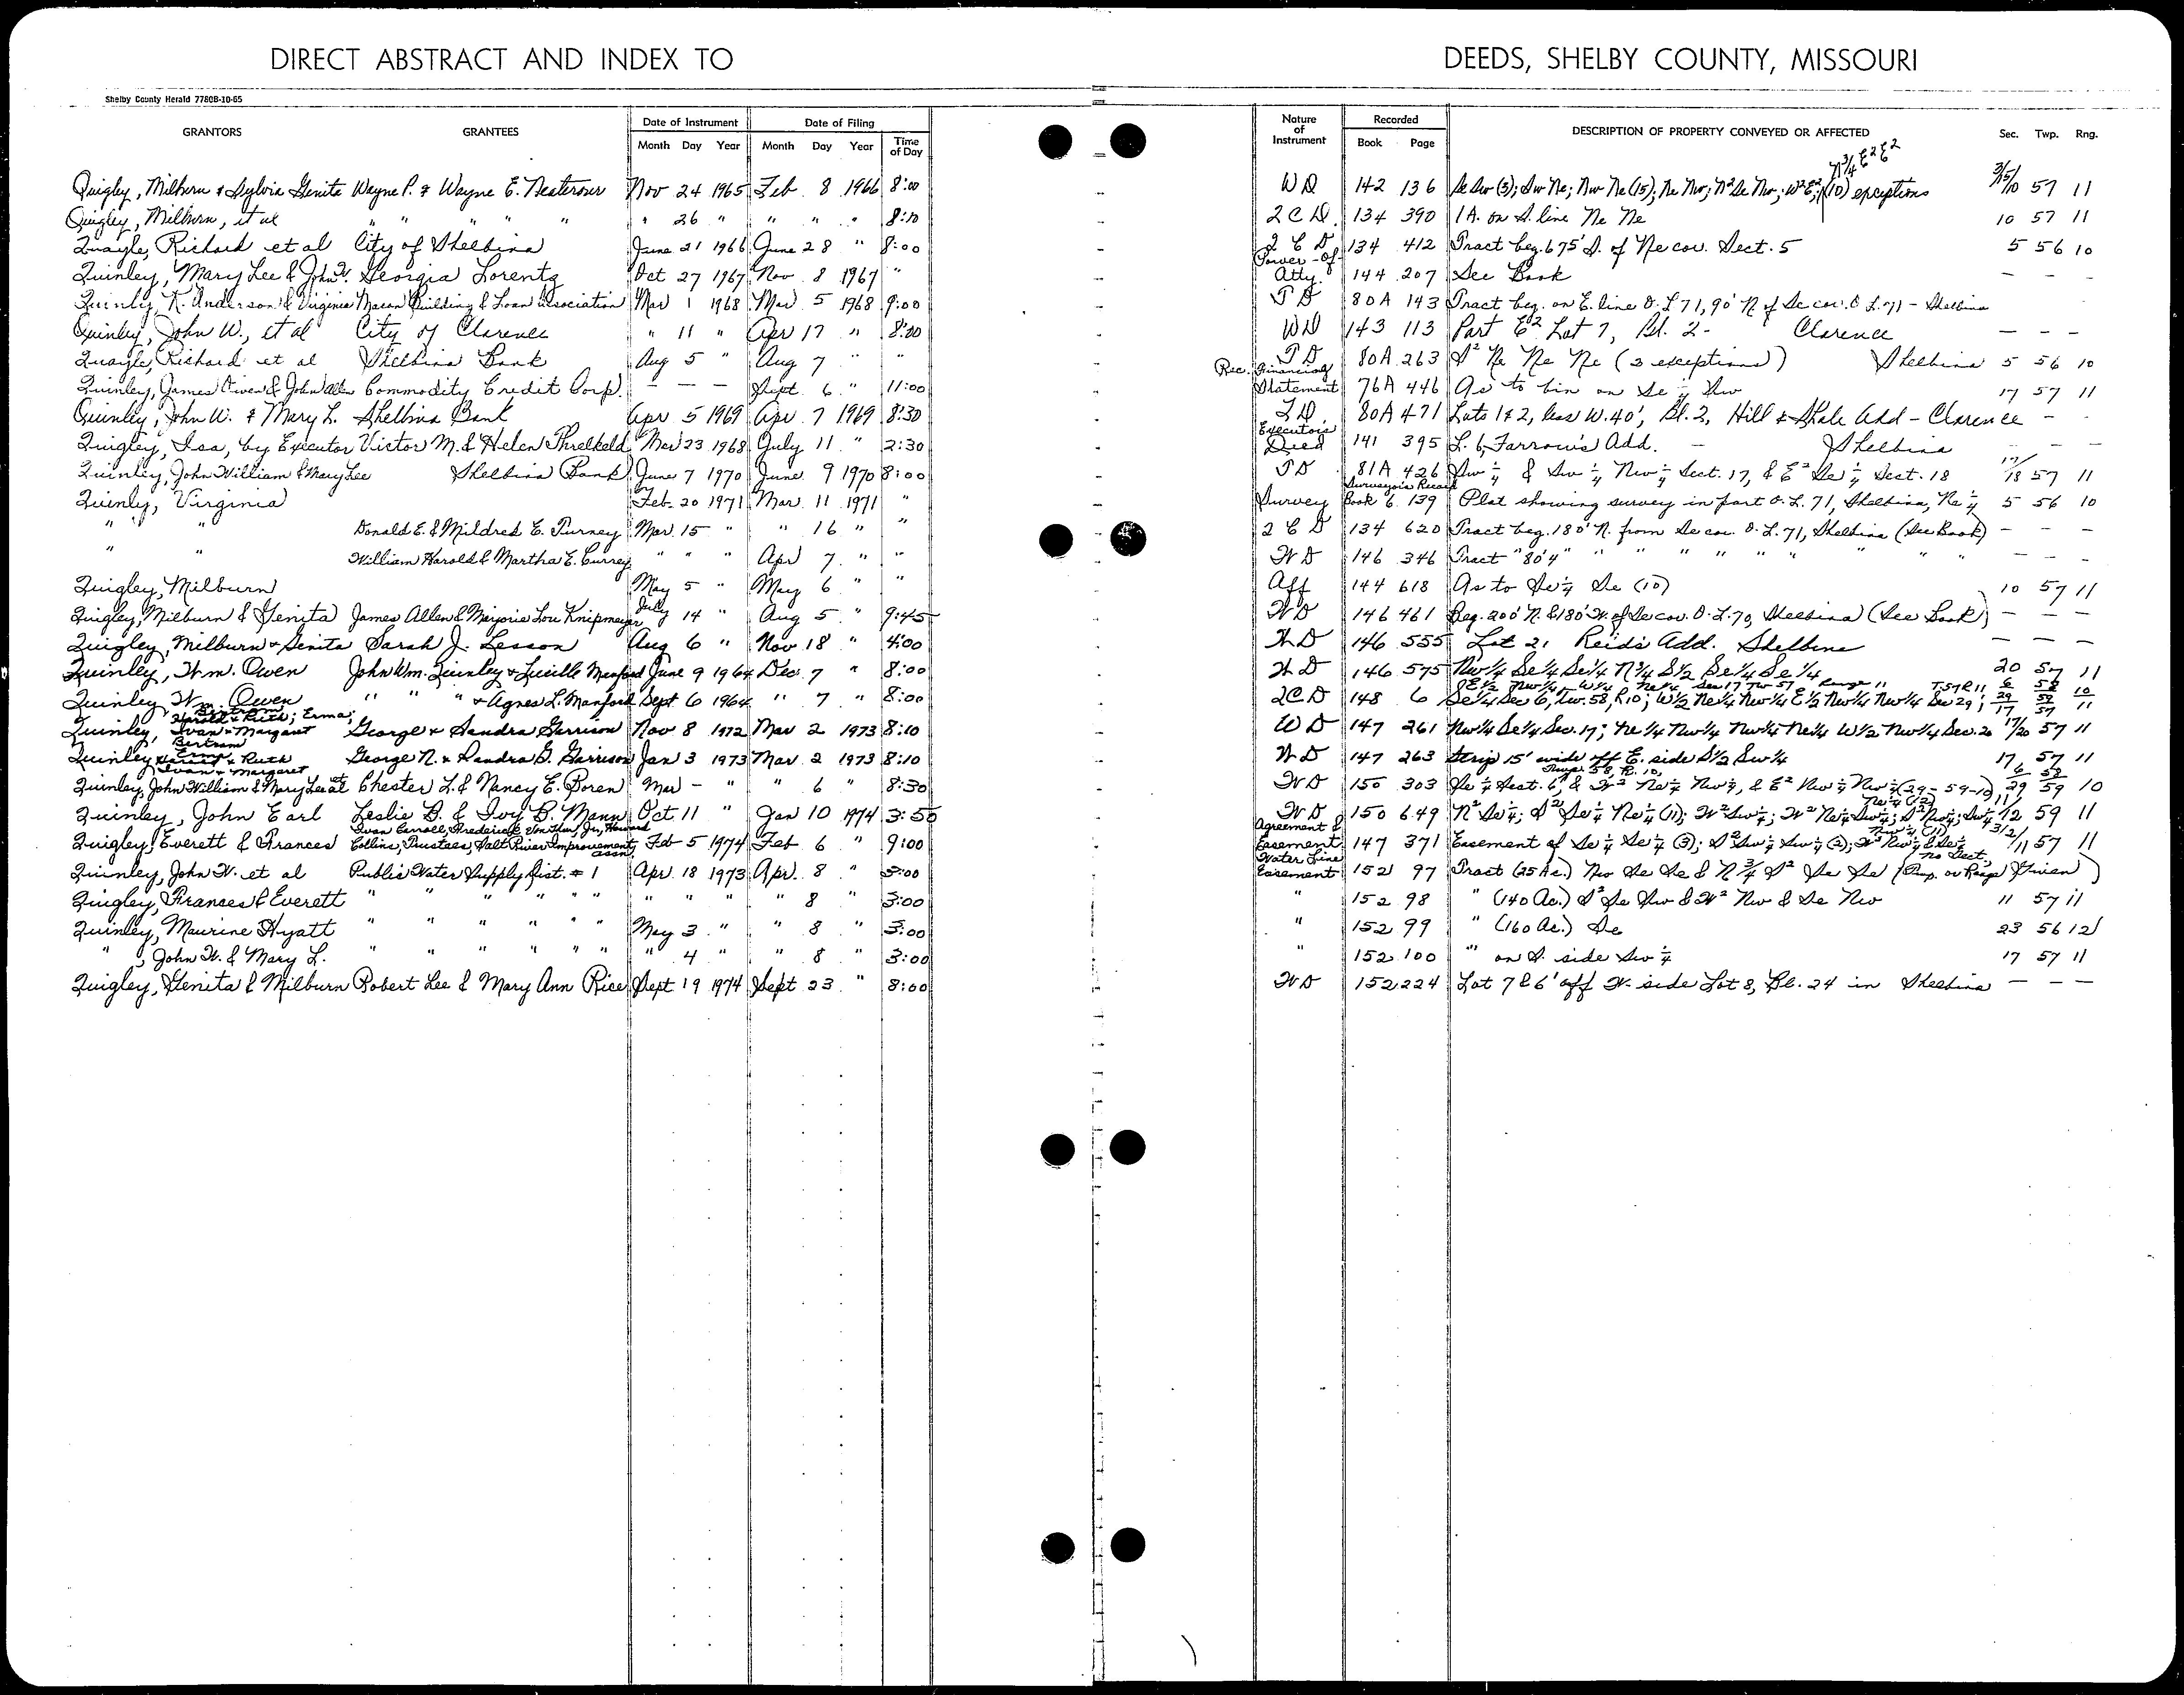 DIRECT ABSTRACT AND INDEX TO DEEDS, SHELBY COUNTY, MISSOURI
Shelby County Herald 7780B-10-65
GRANTORS GRANTEES Date of Instrument Date of Filing Nature of Instrument Recorded DESCRIPTION OF PROPERTY CONVEYED OR AFFECTED Sec. Twp. Rng.
Month Day Year Month Day Year Time of Day Book Page
N 3/4 E2 E2
Quigley, Milburn & Sylvia Genita Wayne P. & Wayne E. Neaterour Nov 24 1965 Feb 8 1966 8:00 WD 142 136 Se Sw (3); Sw Ne; Nw Ne (15); Ne Nw; N2 Se Nw; W2 E2; (10) exceptions 3/15/10 57 11
Quigley, Milburn, et al " " " " " 26 " " " " 8:10 2CD 134 390 1A. on S. line Ne Ne 10 57 11
Quayle, Richard et al City of Shelbina June 21 1966 June 28 " 8:00 2CD 134 412 Tract beg. 675' S. of Ne cor. Sect. 5 5 56 10
Quinley, Mary Lee & John W. Georgia Lorentz Oct 27 1967 Nov 8 1967 " Power-of Atty. 144 207 See Book — — —
Quinley, K. Anderson & Virginia Macon Building & Loan Association Mar 1 1968 Mar 5 1968 9:00 TD 80A 143 Tract beg. on E. line O. L 71, 90' N of Se cor. O L. 71 - Shelbina
Quinley, John W., et al City of Clarence " 11 " Apr 17 " 8:00 WD 143 113 Part E2 Lot 7, Bl. 2- Clarence — — —
Quayle, Richard et al Shelbina Bank Aug 5 " Aug 7 " " TD 80A 263 S2 Ne Ne Ne (3 exceptions) Shelbina 5 56 10
Quinley, James Owen & John Allen Commodity Credit Corp. — — — Sept. 6 " 11:00 Rec. Financing Statement 76A 446 As to bin on Se 1/4 Sw 17 57 11
Quinley, John W. & Mary L. Shelbina Bank Apr 5 1969 Apr 7 1969 8:30 TD 80A 471 Lots 1 & 2, less W. 40', Bl. 2, Hill & Shale Add - Clarence — -
Quigley, Isa, by Executor Victor M. & Helen Threlkeld Mar 23 1968 July 11 " 2:30 Executor's Deed 141 395 L. 6, Farrow's Add. — Shelbina — — —
Quinley, John William & Mary Lee Shelbina Bank June 7 1970 June 9 1970 8:00 TD 81A 426 Sw 1/4 & Sw 1/4 Nw 1/4 Sect. 17, & E2 Se 1/4 Sect. 18 17/18 57 11
Quinley, Virginia Feb. 20 1971 Mar. 11 1971 " Survey Surveyor's Record Book 6 139 Plat showing survey in part O. L. 71, Shelbina, Ne 1/4 5 56 10
" " Donald E. & Mildred E. Turney Mar. 15 " " 16 " " 2CD 134 620 Tract beg. 180' N. from Se cor. O. L. 71, Shelbina (See Book) — — —
" " William Harold & Martha E. Currey " " " Apr 7 " " WD 146 346 Tract "80'4" " " " " " " " " — — —
Quigley, Milburn May 5 " May 6 " " Aff 144 618 As to Se 1/4 Se (10) 10 57 11
Quigley, Milburn & Genita James Allen & Marjorie Lou Knipmeyer July 14 " Aug 5 " 9:45 WD 146 461 Beg. 200' N. & 180' W. of Se cor. O. L. 70, Shelbina (See Book) — —
Quigley, Milburn & Genita Sarah J. Lesson Aug 6 " Nov 18 " 4:00 WD 146 555 Lot 2, Reids Add. Shelbina — — —
Quinley, Wm. Owen John Wm. Quinley & Lucille Manford June 9 1964 Dec 7 " 8:00 WD 146 575 Nw 1/4 Se 1/4 Se 1/4 N 3/4 S 1/2 Se 1/4 Se 1/4 20 57 11
Quinley Wm. Owen " " " & Agnes L. Manford Sept 6 1964 " 7 " 8:00 2CD 148 6 Se 1/4 Sec 6, Tw. 58, R10; W 1/2 Ne 1/4 Nw 1/4 E 1/2 Nw 1/4 Nw 1/4 Sec 29;
Quinley, Bertram Harold & Ruth; Erma; Ivan & Margaret George & Sandra Garrison Nov 8 1972 Mar 2 1973 8:10 WD 147 261 Nw 1/4 Se 1/4 Sec. 17; Ne 1/4 Nw 1/4 Nw 1/4 Ne 1/4 W 1/2 Nw 1/4 Sec. 20 17/20 57 11
Quinley Bertram Erma Harold & Ruth Ivan & Margaret George N. & Sandra G. Garrison Jan 3 1973 Mar. 2 1973 8:10 WD 147 263 Strip 15' wide off E. side S 1/2 Sw 1/4 17 57 11
Quinley, John William & Mary Lee et al Chester L. & Nancy E. Boren Mar - " " 6 " 8:30 WD 150 303 Se 1/4 Sect. 6, Twp. 58, R. 10, & W2 Ne 1/4 Nw 1/4, & E2 Nw 1/4 Nw 1/4 (29-59-10) 6 58 29 59 10
Quinley, John Earl Leslie B. & Ivy B. Mann Oct 11 " Jan 10 1974 3:50 WD 150 649 N2 Se 1/4; S2 Se 1/4 Ne 1/4 (11); W2 Sw 1/4; W2 Ne 1/4 Sw 1/4; S2 Nw 1/4; Sw 1/4 Ne 1/4 (12) 11/12 59 11
Quigley, Everett & Frances Collins, Trustees, Salt River Improvement Assn. Feb 5 1974 Feb 6 " 9:00 Agreement & Easement 147 371 Easement of Se 1/4 Se 1/4 (3); S2 Sw 1/4 Sw 1/4 (2); W2 Nw 1/4 & Se 1/4 Nw 1/4 (11) 3/2/11 57 11
Quinley, John W. et al Public Water Supply Dist. #1 Apr. 18 1973 Apr. 8 " 3:00 Water Line Easement 152 97 Tract (25 Ac.) Nw Se Se & N 3/4 S2 Se Se (No Sect., Twp. or Range Given)
Quigley, Frances & Everett " " " " " " " " " 8 " 3:00 " 152 98 " (140 Ac.) S2 Se Sw & W2 Nw & Se Nw 11 57 11
Quinley, Maurine Hyatt " " " " " May 3 " " 8 " 3:00 " 152 99 " (160 Ac.) Se 23 56 12
" , John W. & Mary L. " " " " " " 4 " " 8 " 3:00 " 152 100 " on S. side Sw 1/4 17 57 11
Quigley, Genita & Milburn Robert Lee & Mary Ann Rice Sept 19 1974 Sept 23 " 8:00 WD 152 224 Lot 7 & 6' off W. side Lot 8, Bl. 24 in Shelbina — — —